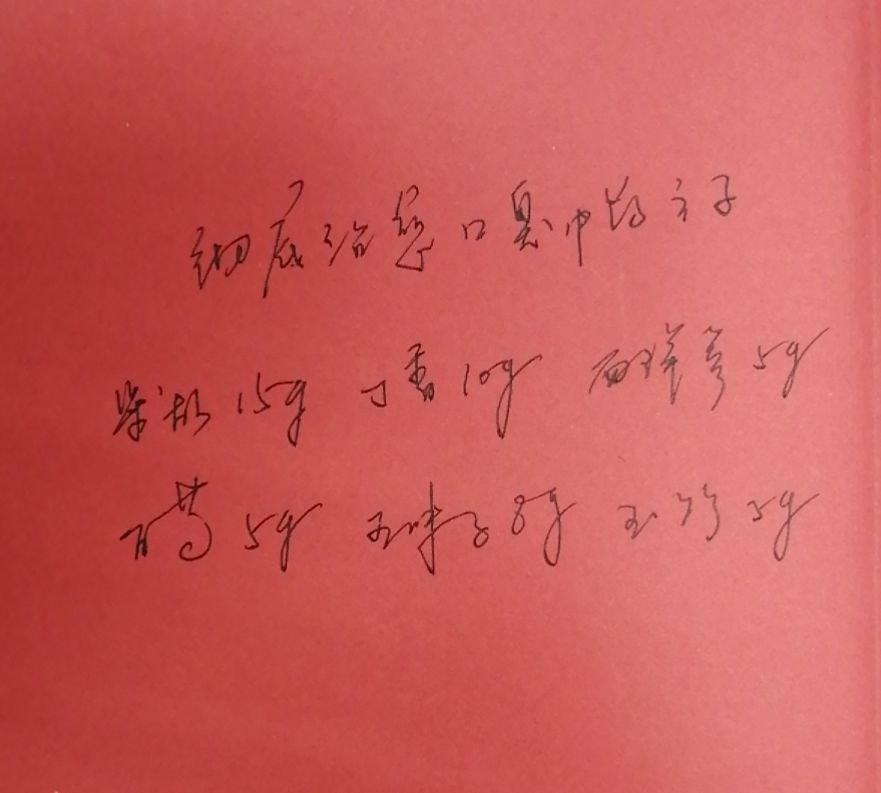 彻底治愈口臭中的方子
柴胡15g 丁香10g 西洋参5g
百荷5g 五味子8g 玉竹5g